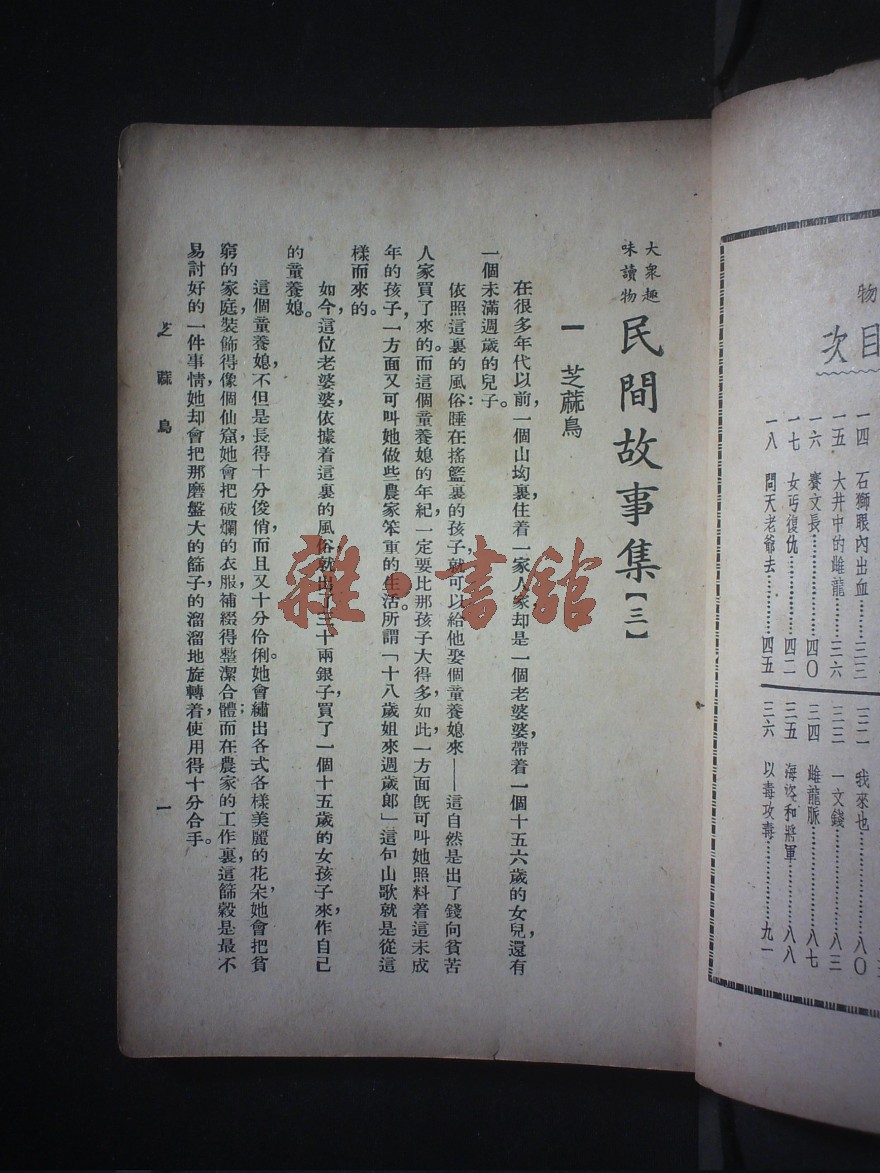 物
目次
一四　石獅眼內出血…………三三
一五　大井中的雌龍…………三六
一六　賽文長…………四〇
一七　女丐復仇…………四二
一八　問天老爺去…………四五
三二　我來也…………八〇
三三　一文錢…………八三
三四　雌龍脈…………八七
三五　海盜和將軍…………八八
三六　以毒攻毒…………九一
大衆趣味讀物
民間故事集【三】
一　芝蔴鳥
在很多年代以前，一個山坳裏，住着一家人家却是一個老婆婆，帶着一個十五六歲的女兒，還有
一個未滿週歲的兒子。
依照這裏的風俗：睡在搖籃裏的孩子，就可以給他娶個童養媳來——這自然是出了錢向貧苦
人家買了來的。而這個童養媳的年紀，一定要比那孩子大得多，如此，一方面旣可叫她照料着這未成
年的孩子，一方面又可叫她做些農家笨重的生活。所謂「十八歲姐來週歲郎」這句山歌就是從這
樣而來的。
如今，這位老婆婆，依據着這裏的風俗就出了三十兩銀子，買了一個十五歲的女孩子來，作自己
的童養媳。
這個童養媳，不但是長得十分俊俏，而且又十分伶俐。她會繡出各式各樣美麗的花朵，她會把貧
窮的家庭，裝飾得像個仙窟，她會把破爛的衣服，補綴得整潔合體；而在農家的工作裏，這篩穀是最不
易討好的一件事情，她却會把那磨盤大的篩子，的溜溜地旋轉着，使用得十分合手。
芝蔴鳥
一
雜·書館